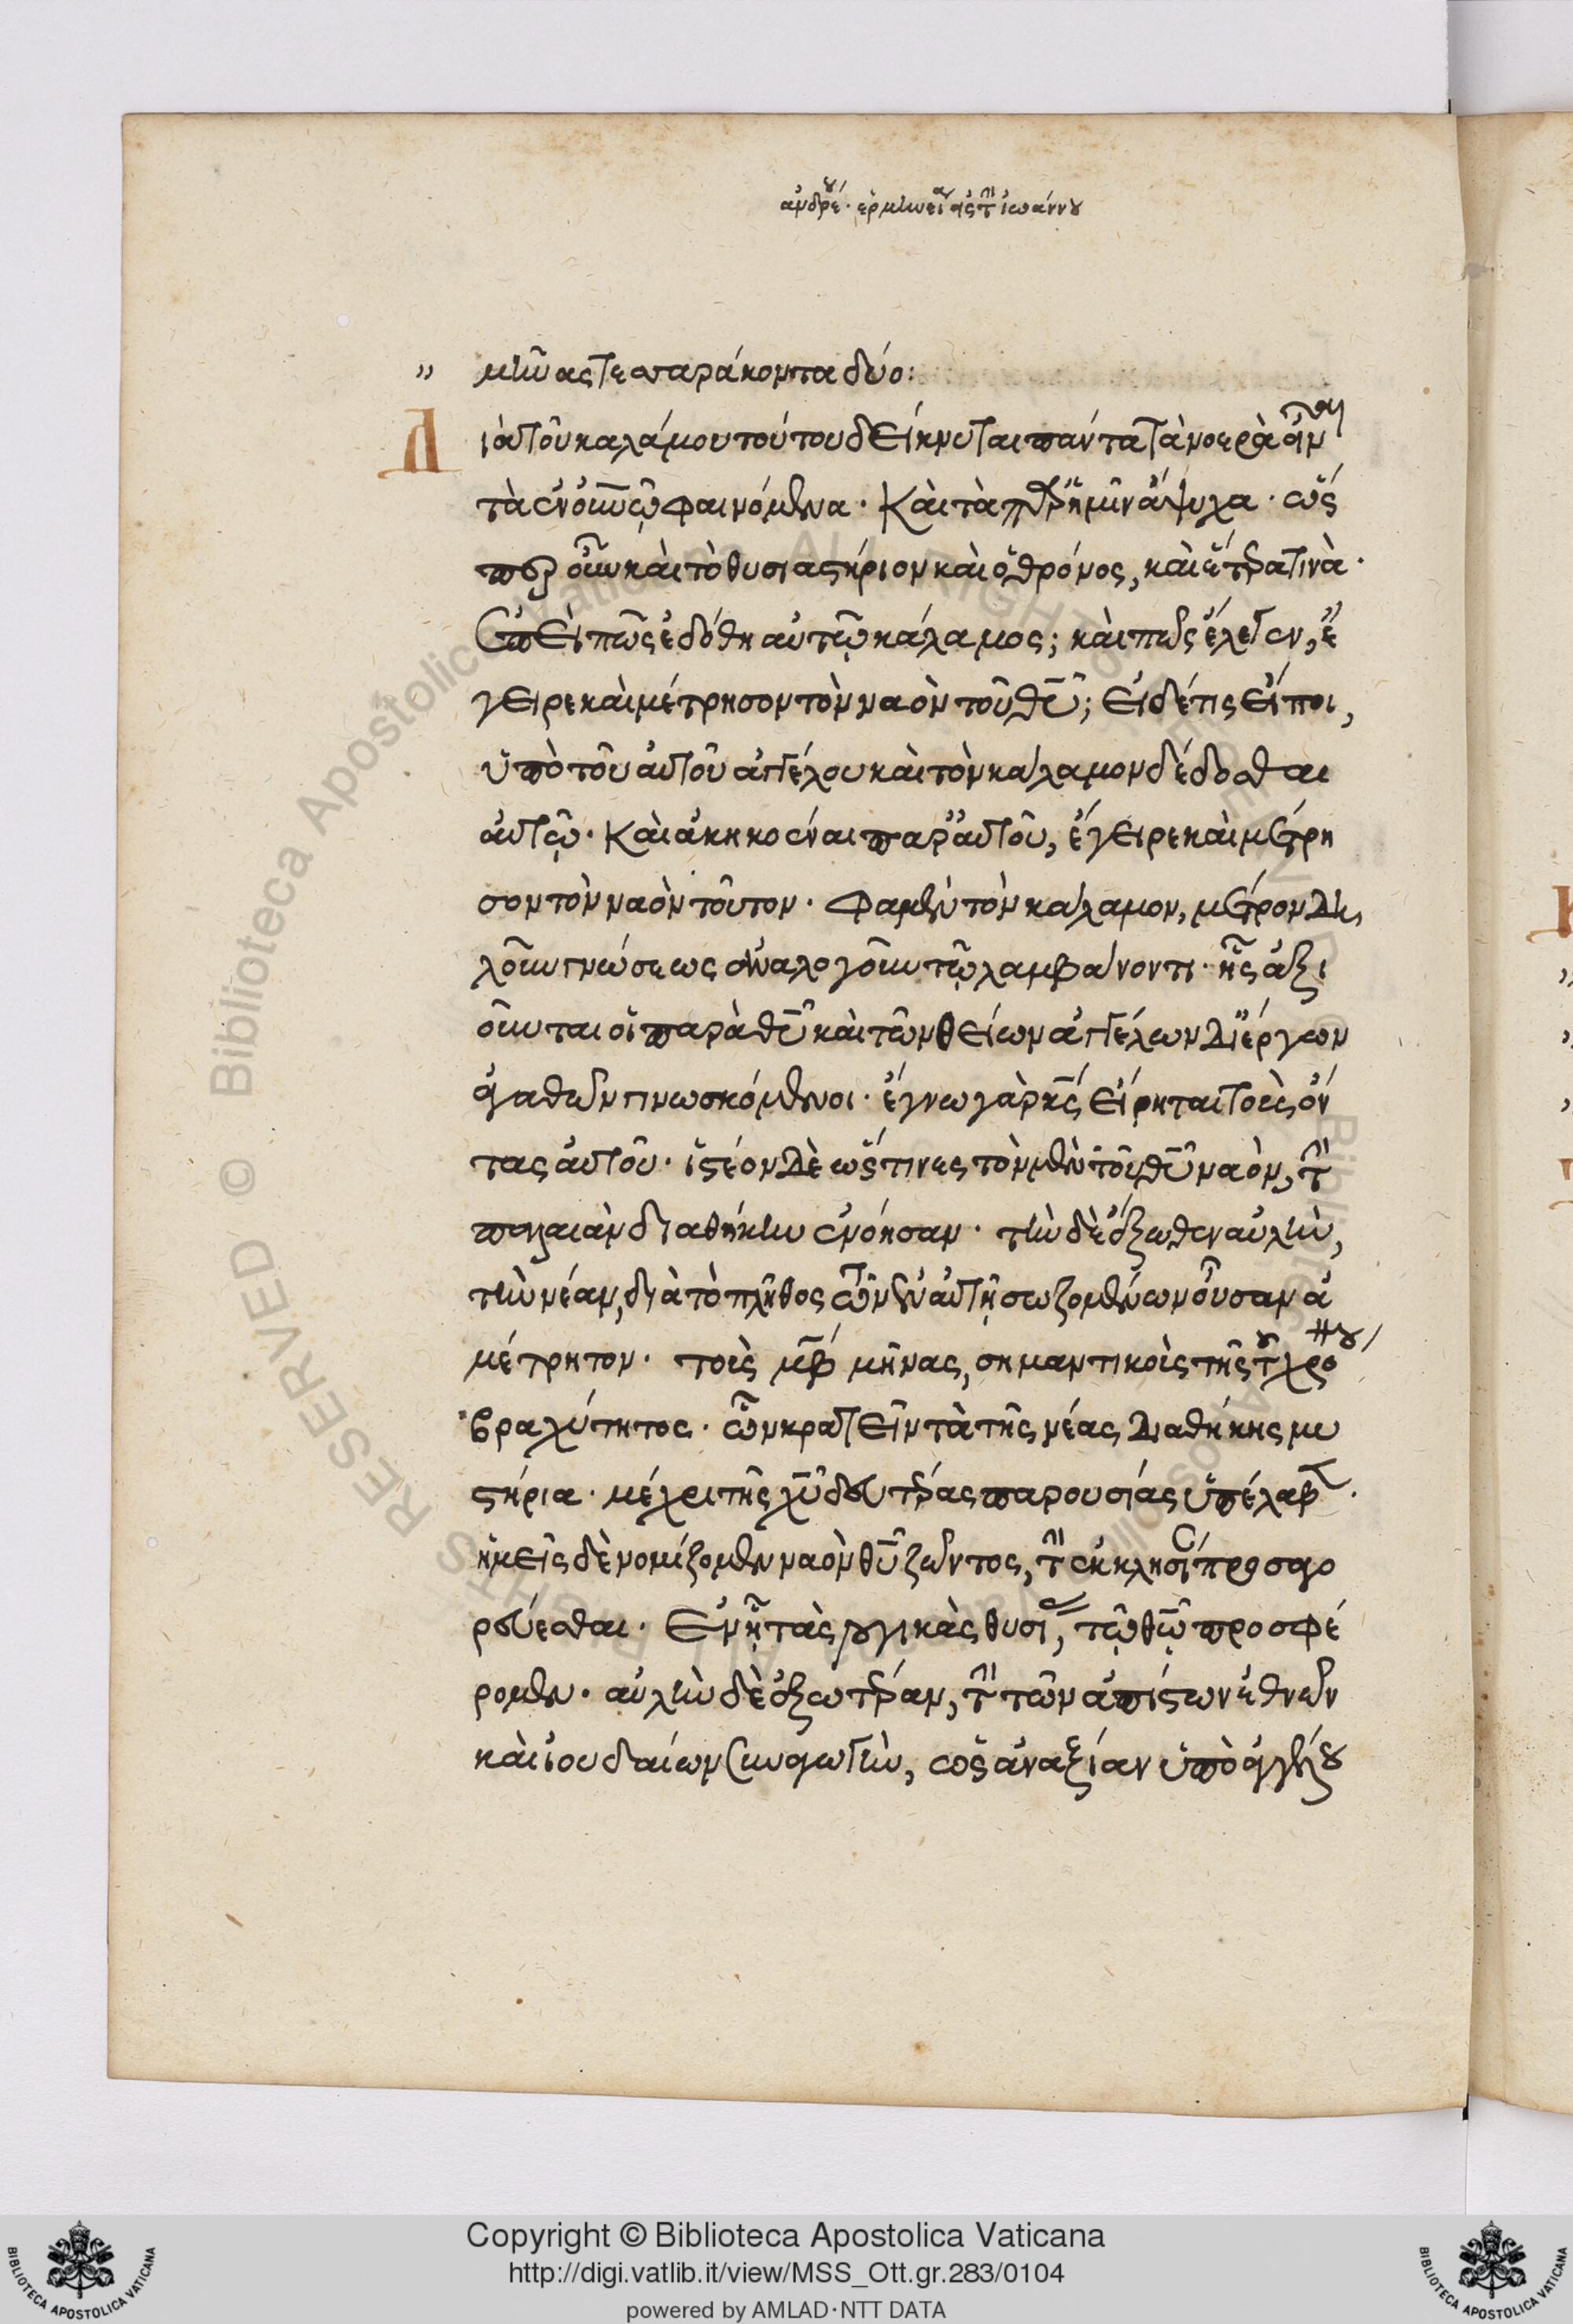 ἀνδρέου ἑρμηνεία εἰς τὴν ἰωάννου
„ μῆνας τεσσαράκοντα δύο:
Διὰ τοῦ καλάμου τούτου δείκνυται πάντα τὰ νοερὰ εἶναι
τὰ ἐν οὐνῷ φαινόμενα · καὶ τὰ παρ' ἡμῖν ἄψυχα · ὥς
περ οὖν καὶ τὸ θυσιαστήριον καὶ ὁ θρόνος, καὶ ἕτερα τινὰ ·
ἐπεὶ πῶς ἐδόθη αὐτῷ κάλαμος; καὶ πῶς ἔλεγεν, ἔ
γειρε καὶ μέτρησον τὸν ναὸν τοῦ θῦ; εἰ δέ τις εἴποι,
ὑπὸ τοῦ αὐτοῦ ἀγγέλου καὶ τὸν κάλαμον δέδοσθαι
αὐτῷ · καὶ ἀκηκοέναι παρ' αὐτοῦ, ἔγειρε καὶ μέτρη
σον τὸν ναὸν τοῦτον · φαμὲν τὸν κάλαμον, μέτρον δη
λοῦν γνώσεως ἀναλογοῦν τῷ λαμβάνοντι · ἧς ἀξι
οῦνται οἱ παρὰ θῦ καὶ τῶν θείων ἀγγέλων δι' ἔργων
ἀγαθῶν γινωσκόμενοι · ἔγνω γὰρ κς εἴρηται τοὺς ὄν
τας αὐτοῦ · ἰστέον δὲ ὥς τινες τὸν μὲν τοῦ θῦ ναὸν, τὴν
παλαιὰν διαθήκην ἐνόησαν · τὴν δὲ ἔξωθεν αὐλὴν,
τὴν νέαν, διὰ τὸ πλῆθος τῶν ἐν αὐτῇ σωζομένων οὖσαν ἀ
μέτρητον · τοὺς μβ μῆνας, σημαντικοὺς τῆς τοῦ χρόνου
βραχύτητος · ὧν κρατεῖν τὰ τῆς νέας διαθήκης μυ
στήρια · μέχρι τῆς χῦ δευτέρας παρουσίας ὑπέλαβον ·
ἡμεῖς δὲ νομίζομεν ναὸν θῦ ζῶντος, τὴν ἐκκλησίαν προσαγο
ρεύεσθαι · ἐν ᾗ τὰς λογικὰς θυσίας, τῷ θῷ προσφέ
ρομεν · αὐλὴν δὲ ἐξωτέραν, τὴν τῶν ἀπίστων ἐθνῶν
καὶ ἰουδαίων συναγωγὴν, ὡς ἀναξίαν ὑπὸ ἀγγέλου
Copyright © Biblioteca Apostolica Vaticana
http://digi.vatlib.it/view/MSS_Ott.gr.283/0104
powered by AMLAD·NTT DATA